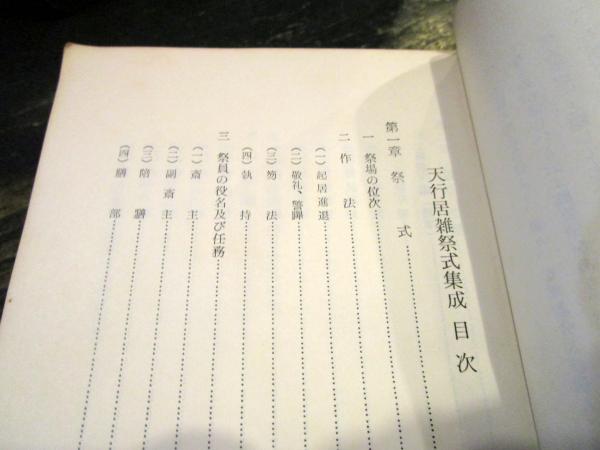 天行居雑祭式集成 目次
第一章 祭式
一 祭場の位次
二 作法
(一) 起居進退
(二) 敬礼、警蹕
(三) 笏法
(四) 執持
三 祭員の役名及び任務
(一) 斎主
(二) 副斎主
(三) 陪膳
(四) 膳部